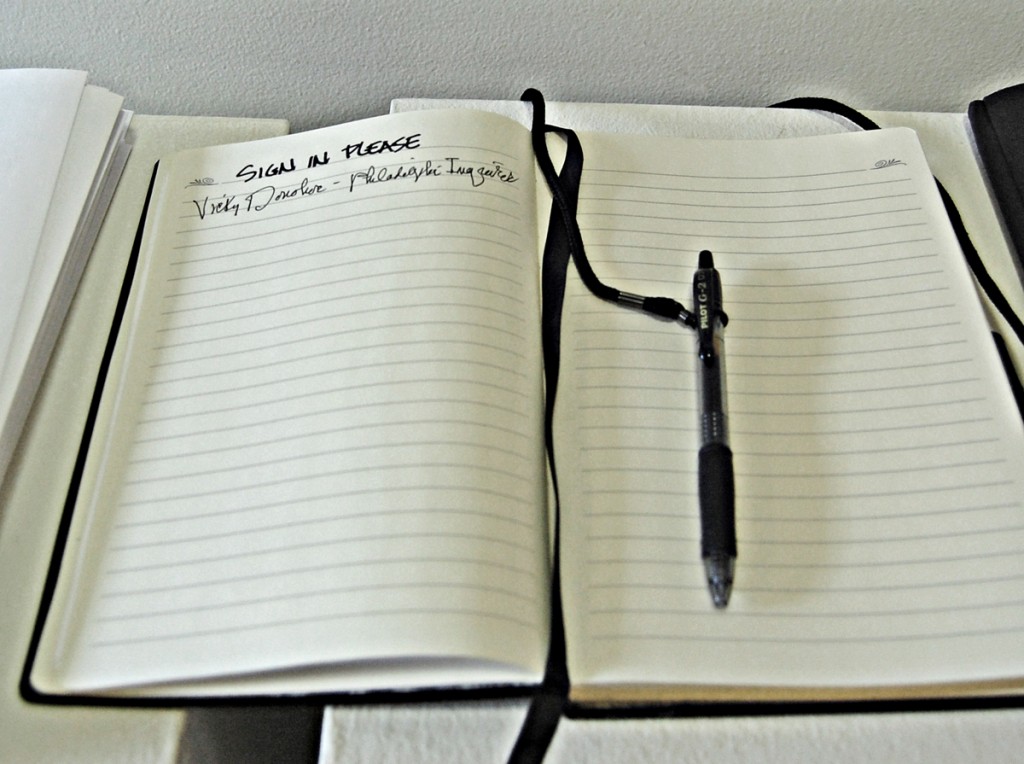 SIGN IN PLEASE
Vicky Donohoe - Philadelphia Inquirer
PILOT G-2